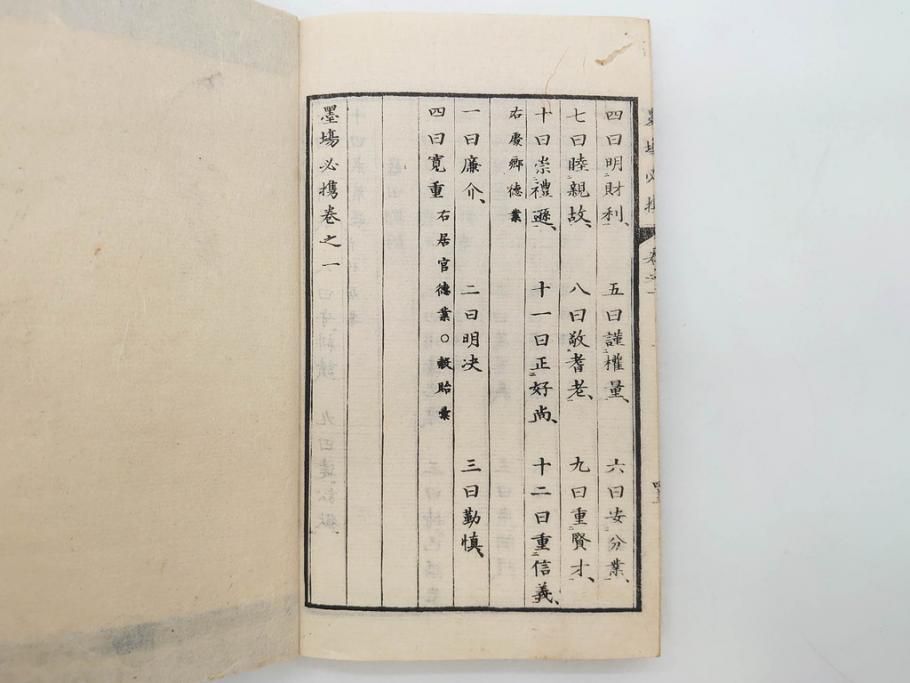 四曰明財利、 五曰謹權量、 六曰安分業、
七曰睦親故、 八曰敬耆老、 九曰重賢才、
十曰崇禮遜、 十一曰正好尚、 十二曰重信義、
右處鄉德業
一曰廉介、 二曰明决 三曰勤慎、
四曰寬重 右居官德業○穀貽彙
墨場必携卷之一